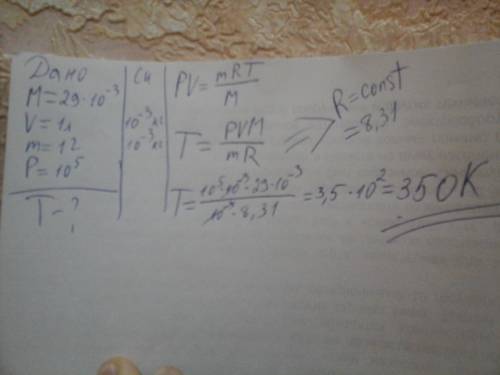 Дано
M = 29·10⁻³
V = 1л
m = 1г
P = 10⁵
T - ?
Си
10⁻³ кг
10⁻³ кг
PV = mRT/M
T = PVM/mR
R = const
= 8,31
T = 10⁵·10⁻³·29·10⁻³/10⁻³·8,31 = 3,5·10² = 350K